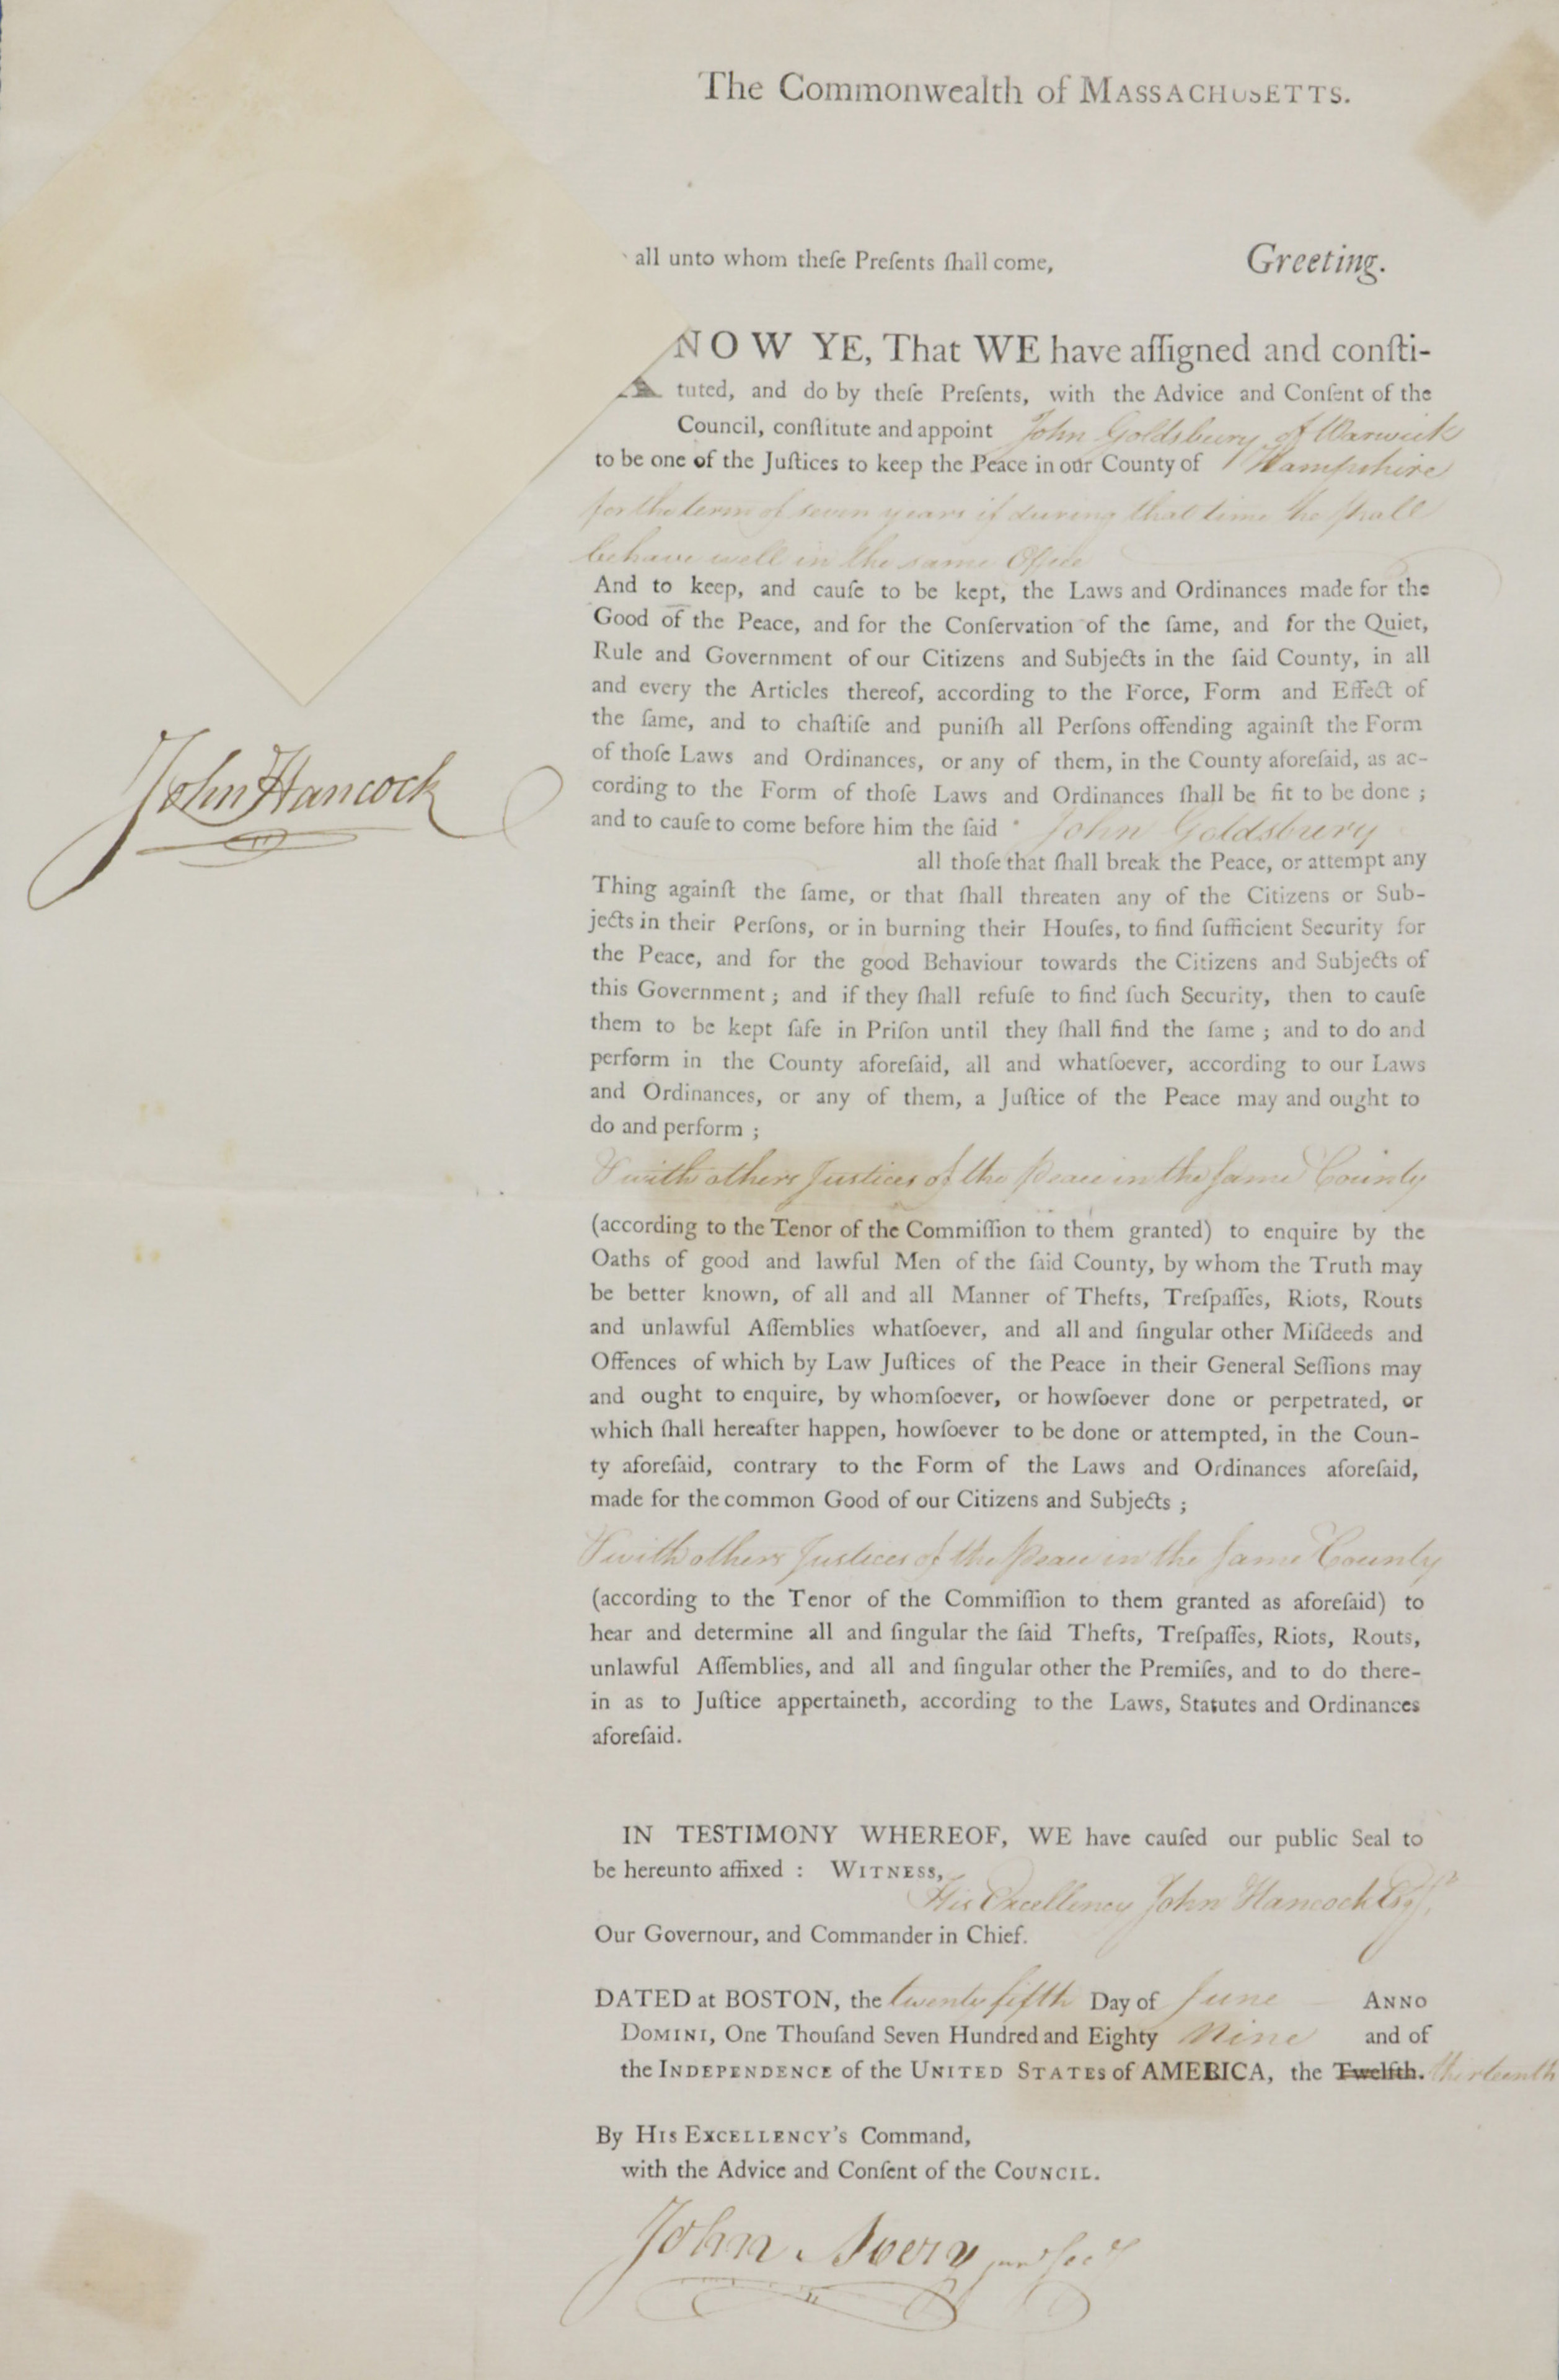 The Commonwealth of MASSACHUSETTS.
all unto whom theſe Preſents ſhall come, Greeting.
NOW YE, That WE have aſſigned and conſti-
tuted, and do by theſe Preſents, with the Advice and Conſent of the
Council, conſtitute and appoint John Goldsbury of Warwick
to be one of the Juſtices to keep the Peace in our County of Hampshire
for the term of seven years if during that time he ſhall
behave well in the same Office
And to keep, and cauſe to be kept, the Laws and Ordinances made for the
Good of the Peace, and for the Conſervation of the ſame, and for the Quiet,
Rule and Government of our Citizens and Subjects in the ſaid County, in all
and every the Articles thereof, according to the Force, Form and Effect of
the ſame, and to chaſtiſe and puniſh all Perſons offending againſt the Form
of thoſe Laws and Ordinances, or any of them, in the County aforeſaid, as ac-
cording to the Form of thoſe Laws and Ordinances ſhall be fit to be done ;
and to cauſe to come before him the ſaid John Goldsbury
John Hancock
all thoſe that ſhall break the Peace, or attempt any
Thing againſt the ſame, or that ſhall threaten any of the Citizens or Sub-
jects in their Perſons, or in burning their Houſes, to find ſufficient Security for
the Peace, and for the good Behaviour towards the Citizens and Subjects of
this Government ; and if they ſhall refuſe to find ſuch Security, then to cauſe
them to be kept ſafe in Priſon until they ſhall find the ſame ; and to do and
perform in the County aforeſaid, all and whatſoever, according to our Laws
and Ordinances, or any of them, a Juſtice of the Peace may and ought to
do and perform ;
& with others Justices of the Peace in the ſame County
(according to the Tenor of the Commiſſion to them granted) to enquire by the
Oaths of good and lawful Men of the ſaid County, by whom the Truth may
be better known, of all and all Manner of Thefts, Treſpaſſes, Riots, Routs
and unlawful Aſſemblies whatſoever, and all and ſingular other Miſdeeds and
Offences of which by Law Juſtices of the Peace in their General Seſſions may
and ought to enquire, by whomſoever, or howſoever done or perpetrated, or
which ſhall hereafter happen, howſoever to be done or attempted, in the Coun-
ty aforeſaid, contrary to the Form of the Laws and Ordinances aforeſaid,
made for the common Good of our Citizens and Subjects ;
& with others Justices of the Peace in the ſame County
(according to the Tenor of the Commiſſion to them granted as aforeſaid) to
hear and determine all and ſingular the ſaid Thefts, Treſpaſſes, Riots, Routs,
unlawful Aſſemblies, and all and ſingular other the Premiſes, and to do there-
in as to Juſtice appertaineth, according to the Laws, Statutes and Ordinances
aforeſaid.
IN TESTIMONY WHEREOF, WE have cauſed our public Seal to
be hereunto affixed : WITNESS,
His Excellency John Hancock Esqr.
Our Governour, and Commander in Chief.
DATED at BOSTON, the twenty fifth Day of June ANNO
DOMINI, One Thouſand Seven Hundred and Eighty Nine and of
the INDEPENDENCE of the UNITED STATES of AMERICA, the Twelfth. thirteenth
By HIS EXCELLENCY's Command,
with the Advice and Conſent of the COUNCIL.
John Avery junr Secy